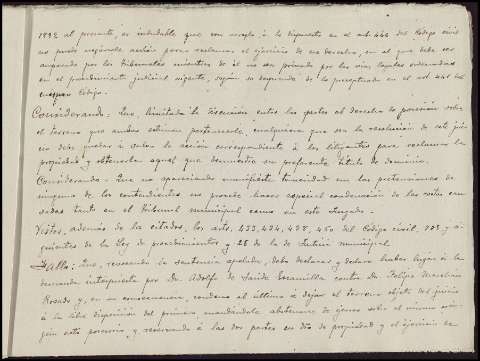 1892 al presente, es indudable que con arreglo á lo dispuesto en el art. 446 del Código civil
no puede negársele acción para reclamar el ejercicio de ese derecho, en el que debe ser
amparado por los tribunales mientras de él no sea privado por las vías legales ordenadas
en el procedimiento judicial vigente, según se desprende de lo preceptuado en el art. 441 del
mismo Código.
Considerando: Que, limitada la discusión entre las partes al derecho de posesión sobre
el terreno que ambas estiman pertenecerle, cualquiera que sea la resolución de este jui-
cio deja quedar á salvo la acción correspondiente á los litigantes para reclamar la
propiedad y obtenerla aquel que demuestre su preferente título de dominio.
Considerando: Que no apareciendo manifiesta temeridad en las pretensiones de
ninguno de los contendientes no procede hacer especial condenación de las costas cau-
sadas tanto en el Tribunal municipal como en este Juzgado.
Vistos, además de los citados, los arts. 433, 434, 438, 450 del Código civil, y si-
guientes de la Ley de procedimientos y 28 de la de Justicia municipal.
Fallo: Que, revocando la sentencia apelada, debo declarar y declaro haber lugar á la
demanda interpuesta por Dn. Adolfo de Escamilla contra Dn. Felipe
Rosado y, en su consecuencia, condeno al último á dejar el terreno objeto del juicio
á la libre disposición del primero mandándole abstenerse de ejercer sobre el mismo nin-
gún acto posesorio, y reservando á las dos partes su dro. de propiedad y el ejercicio de